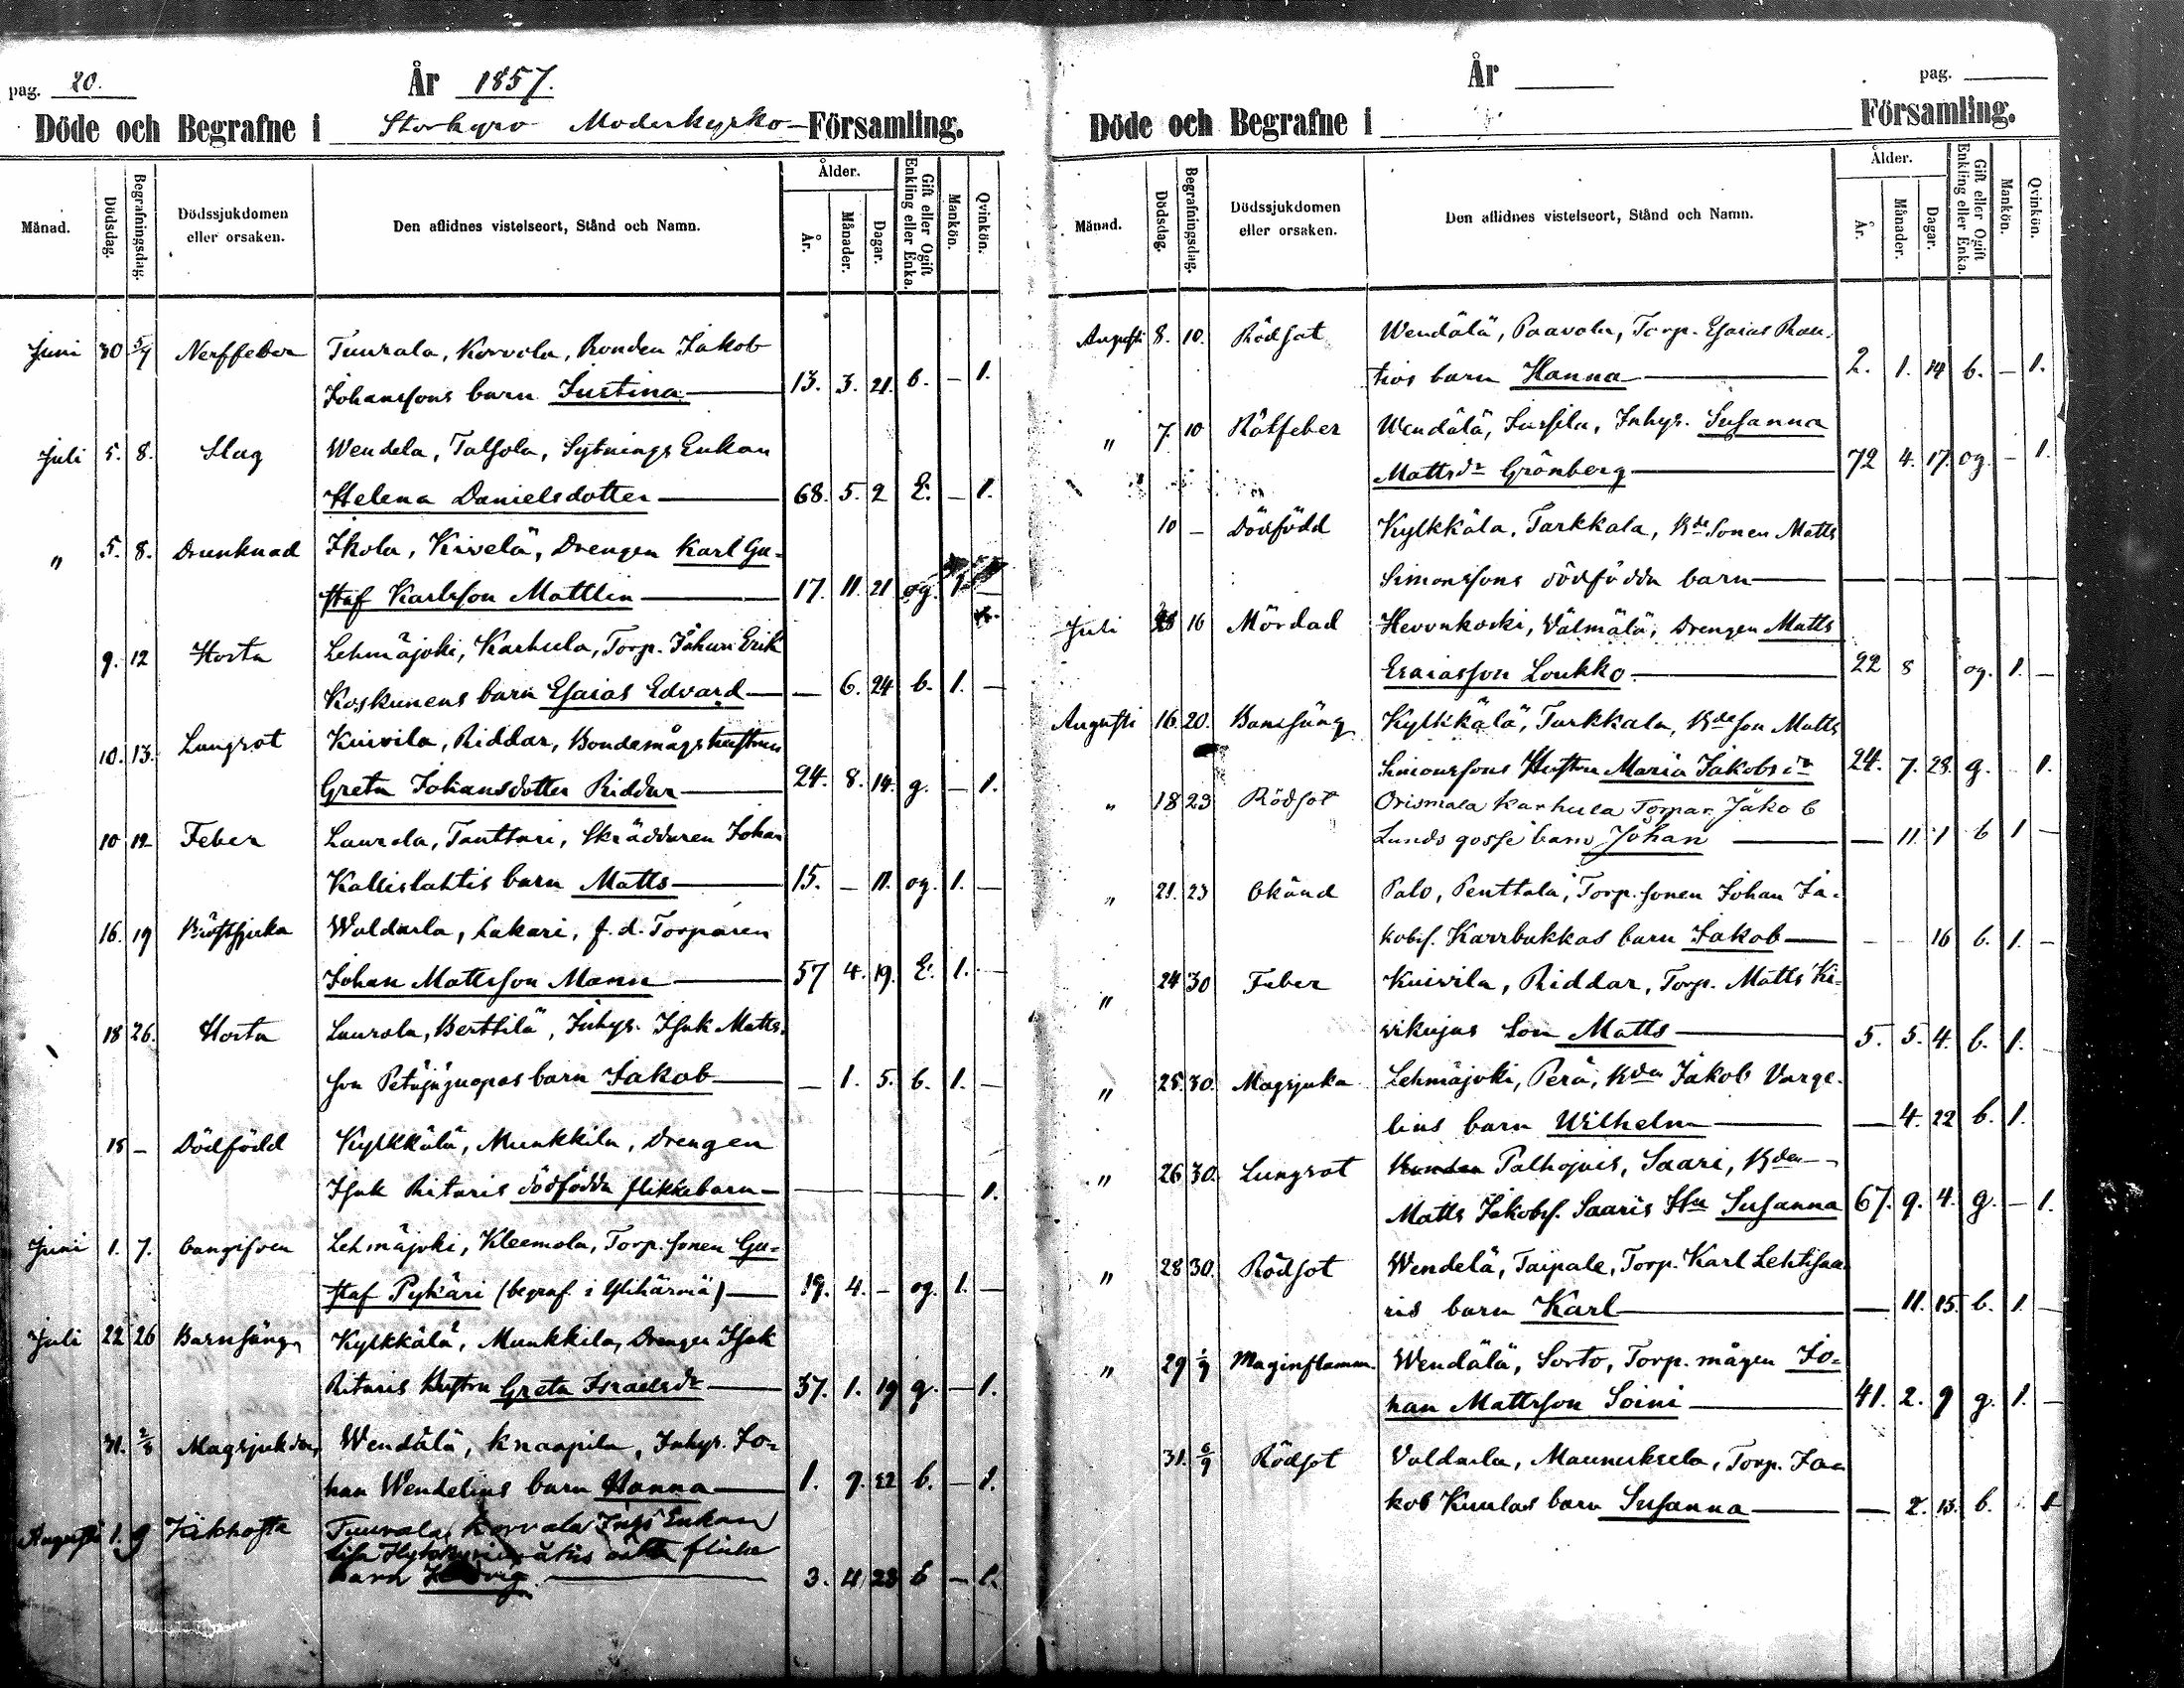 pag. 20.
År 1857.
Döde och Begrafne i Storkyro Moderkyrko-Församling.
Månad.
Dödsdag.
Begrafningsdag.
Dödssjukdomen
eller orsaken.
Den aflidnes vistelseort, Stånd och Namn.
Ålder.
År.
Månader.
Dagar.
Gift eller Ogift
Enkling eller Enka.
Mankön.
Qvinkön.
Juni 30 5/7 Nerffeber Tuurala, Korvola, Bonden Jakob
Johanssons barn Justina 13. 3. 21. b. — 1.
Juli 5. 8. Slag Wendela, Talsola, Sytnings Enkan
Helena Danielsdotter 68. 5. 2 E. — 1.
" 5. 8. Drunknad Ikola, Kivelä, Drengen Karl Gu-
staf Karlsson Mattlin 17. 11. 21 og. 1. —
9. 12 Hosta Lehmäjoki, Karhula, Torp. Johan Erik
Koskunens barn Esaias Edvard — 6. 24 b. 1. —
10. 13. Lungsot Kuivila, Riddar, Bondemågs hustrun
Greta Johansdotter Riddar 24. 8. 14. g. — 1.
10 12 Feber Laurola, Tanttari, Skräddaren Johan
Kallislahtis barn Matts 15. — 11. og. 1. —
16. 19 Bröstsjuka Waldarla, Lakari, f. d. Torparen
Johan Mattsson Mann 57 4. 19. E. 1. —
18 26. Hosta Laurola, Berttilä, Inhys. Isak Matts-
son barn Jakob — 1. 5. b. 1. —
18 — Dödfödd Kylkkälä, Munkkila, Drengen
Isak Ritaris dödfödda flickebarn — 1.
Juni 1. 7. Lehmäjoki, Kleemola, Torp. sonen Gu-
staf Pykäri (begraf. i Ylihärmä) 19. 4. — og. 1. —
Juli 22 26 Barnsäng Kylkkälä, Munkkila, Drengen Isak
Ritaris Hustru Greta Israelsdr 37. 1. 19 g. — 1.
31. 2/8 Magsjukdom Wendälä, Knaapila, Inhys. Jo-
han Wendelins barn Hanna 1. 9. 22 b. — 1.
Augusti 1. 9 Kikhosta Tuurala, Korvala Inhs Enkan
Lisa oäkta flicke
barn 3. 11 28 b — 1.
År
pag.
Döde och Begrafne i Församling.
Månad.
Dödsdag.
Begrafningsdag.
Dödssjukdomen
eller orsaken.
Den aflidnes vistelseort, Stånd och Namn.
Ålder.
År.
Månader.
Dagar.
Gift eller Ogift
Enkling eller Enka.
Mankön.
Qvinkön.
Augusti 8. 10. Rödsot Wendälä, Paavola, Torp. Esaias Rau-
tios barn Hanna 2. 1. 14 b. — 1.
" 7. 10 Rötfeber Wendälä, Jussila, Inhys. Susanna
Mattsdr Grönberg 72 4. 17. og. — 1.
10 — Dödfödd Kylkkälä, Tarkkala, Bde Sonen Matts
Simonssons dödfödda barn
Juli 28 16 Mördad Hevonkoski, Välmälä, Drengen Matts
Esaiasson Loukko 22 8 og. 1. —
Augusti 16. 20. Barnsäng Kylkkälä, Tarkkala, Bde son Matts
Simonssons Hustru Maria Jakobsdr 24. 7. 28. g. 1.
" 18 23 Rödsot Orismala Karhula Torpar. Jakob
Lunds gosse barn Johan — 11. 1 b 1 —
" 21. 23 Okänd Palo, Penttala, Torp. sonen Johan Ja-
kobs. Karrbakkas barn Jakob — — 16 b. 1. —
" 24 30 Feber Kuivila, Riddar, Torp. Matts Ki-
vikujas Son Matts 5. 5. 4. b. 1. —
" 25. 30. Magsjuka Lehmäjoki, Perä, Bden Jakob Varge-
lius barn Wilhelm — 4. 22 b. 1.
" 26 30. Lungsot Palhojais, Saari, Bden
Matts Jakobs. Saaris Hu Susanna 67. 9. 4. g. — 1.
" 28 30. Rödsot Wendelä, Taipale, Torp. Karl Lehtisaa-
ris barn Karl — 11. 15. b. 1. —
" 29 1/9 Maginflamm. Wendälä, Sorto, Torp. mågen Jo-
han Mattsson Soini 41. 2. 9 g. 1. —
31. 6/9 Rödsot Valdarla, Maunuksela, Torp. Jaa-
kob Kuulas barn Susanna — 2. 13. b. 1